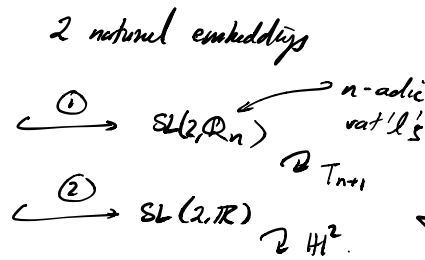 2 natural embeddings
① SL(2,ℚₙ) n-adic
rat'l's
Tₙ₊₁
② SL(2,ℝ)
ℍ².